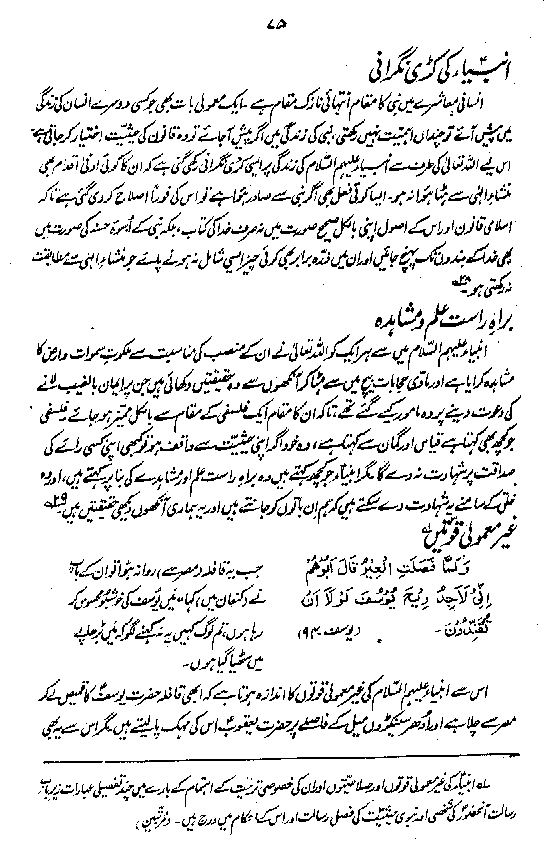 ۷۵
انبیاء کی کڑی نگرانی
انسانی معاشرے میں نبی کا مقام انتہائی نازک مقام ہے۔ ایک معمولی بات بھی جو کسی دوسرے انسان کی زندگی
میں پیش آئے تو چنداں اہمیت نہیں رکھتی، نبی کی زندگی میں اگر پیش آجائے تو وہ قانون کی حیثیت اختیار کر جاتی ہے
اس لیے اللہ تعالیٰ کی طرف سے انبیاء علیہم السلام کی زندگی پر ایسی کڑی نگرانی رکھی گئی ہے کہ ان کا کوئی ادنیٰ اقدام بھی
منشاء الٰہی سے ہٹا ہوا نہ ہو۔ ایسا کوئی فعل بھی اگر نبی سے صادر ہوا ہے تو اس کی فوراً اصلاح کر دی گئی ہے تاکہ
اسلامی قانون اور اس کے اصول اپنی بالکل صحیح صورت میں نہ صرف خدا کی کتاب، بلکہ نبی کے اسوۂ حسنہ کی صورت میں
بھی خدا کے بندوں تک پہنچ جائیں اور ان میں ذرہ برابر بھی کوئی چیز ایسی شامل نہ ہونے پائے جو منشاء الٰہی سے مطابقت
نہ رکھتی ہو۔
براہِ راست علم و مشاہدہ
انبیاء علیہم السلام میں سے ہر ایک کو اللہ تعالیٰ نے ان کے منصب کی مناسبت سے ملکوت سموات و ارض کا
مشاہدہ کرایا ہے اور مادی حجابات بیچ میں سے ہٹا کر آنکھوں سے وہ حقیقتیں دکھائی ہیں جن پر ایمان بالغیب لانے
کی دعوت دینے پر وہ مامور کیے گئے تھے، تاکہ ان کا مقام ایک فلسفی کے مقام سے بالکل ممیز ہو جائے۔ فلسفی
جو کچھ بھی کہتا ہے قیاس اور گمان سے کہتا ہے، وہ خود اگر اپنی حیثیت سے واقف ہو تو کبھی اپنی کسی رائے کی
صداقت پر شہادت نہ دے گا مگر انبیاء جو کچھ کہتے ہیں وہ براہِ راست علم اور مشاہدے کی بنا پر کہتے ہیں، اور وہ
خلق کے سامنے یہ شہادت دے سکتے ہیں کہ ہم ان باتوں کو جانتے ہیں اور یہ ہماری آنکھوں دیکھی حقیقتیں ہیں۔
غیر معمولی قوتیں
وَلَمَّا فَصَلَتِ الْعِيْرُ قَالَ اَبُوْهُمْ
اِنِّيْ لَاَجِدُ رِيْحَ يُوْسُفَ لَوْلَا اَنْ
تُفَنِّدُوْنَ۔ (یوسف۔۹۴)
جب یہ قافلہ (مصر سے) روانہ ہوا تو ان کے باپ
نے (کنعان میں) کہا "میں یوسف کی خوشبو محسوس کر
رہا ہوں، تم لوگ کہیں یہ نہ کہنے لگو کہ میں بڑھاپے
میں سٹھیا گیا ہوں۔
اس سے انبیاء علیہم السلام کی غیر معمولی قوتوں کا اندازہ ہوتا ہے کہ ابھی قافلہ حضرت یوسفؑ کا قمیص لے کر
مصر سے چلا ہے اور اُدھر سینکڑوں میل کے فاصلے پر حضرت یعقوبؑ اس کی مہک پا لیتے ہیں۔ مگر اس سے یہ بھی
لہ انبیاء کی غیر معمولی قوتوں اور صلاحیتوں اور ان کی خصوصی تربیت کے اہتمام کے بارے میں چند تفصیلی عبارات زیر باب
رسالت آنحضورؐ کی شخصی اور نبوی حیثیت کی فصل رسالت اور اس کے احکام میں درج ہیں۔ (مرتبین)